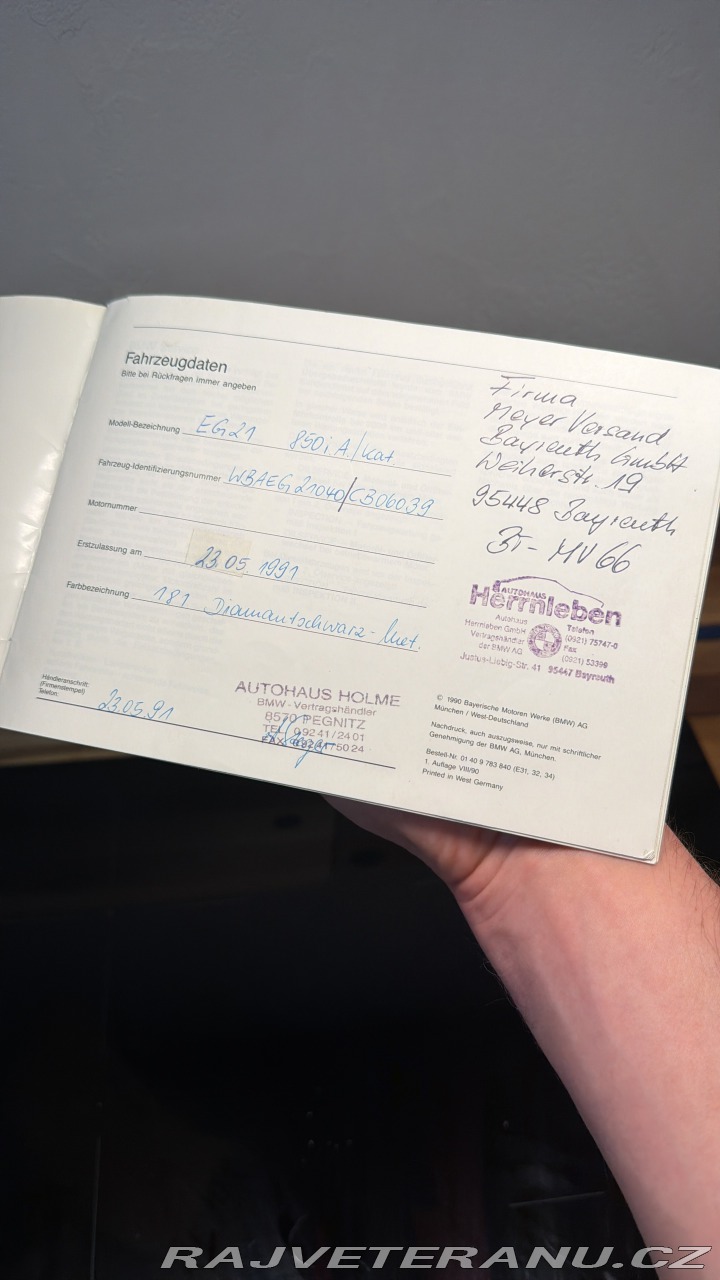 Fahrzeugdaten
Bitte bei Rückfragen immer angeben
Modell-Bezeichnung EG21 850i A/Kat.
Fahrzeug-Identifizierungsnummer WBAEG21040/CB06039
Motornummer
Erstzulassung am 23.05.1991
Farbbezeichnung 181 Diamantschwarz-Met.
Händleranschrift:
(Firmenstempel)
Telefon:
23.05.91
AUTOHAUS HOLME
BMW-Vertragshändler
8570 PEGNITZ
TEL. 09241/2401
FAX 09241/5024
Firma
Meyer Versand
Bayreuth GmbH
Weiherstr. 19
95448 Bayreuth
BT-MV66
AUTOHAUS
Herrnleben
Autohaus
Herrnleben GmbH
Vertragshändler
der BMW AG
Telefon
(0921) 75747-0
Fax
(0921) 53399
Justus-Liebig-Str. 41 95447 Bayreuth
© 1990 Bayerische Motoren Werke (BMW) AG
München / West-Deutschland
Nachdruck, auch auszugsweise, nur mit schriftlicher
Genehmigung der BMW AG, München.
Bestell-Nr. 01 40 9 783 840 (E31, 32, 34)
1. Auflage VIII/90
Printed in West Germany
RAJVETERANU.CZ